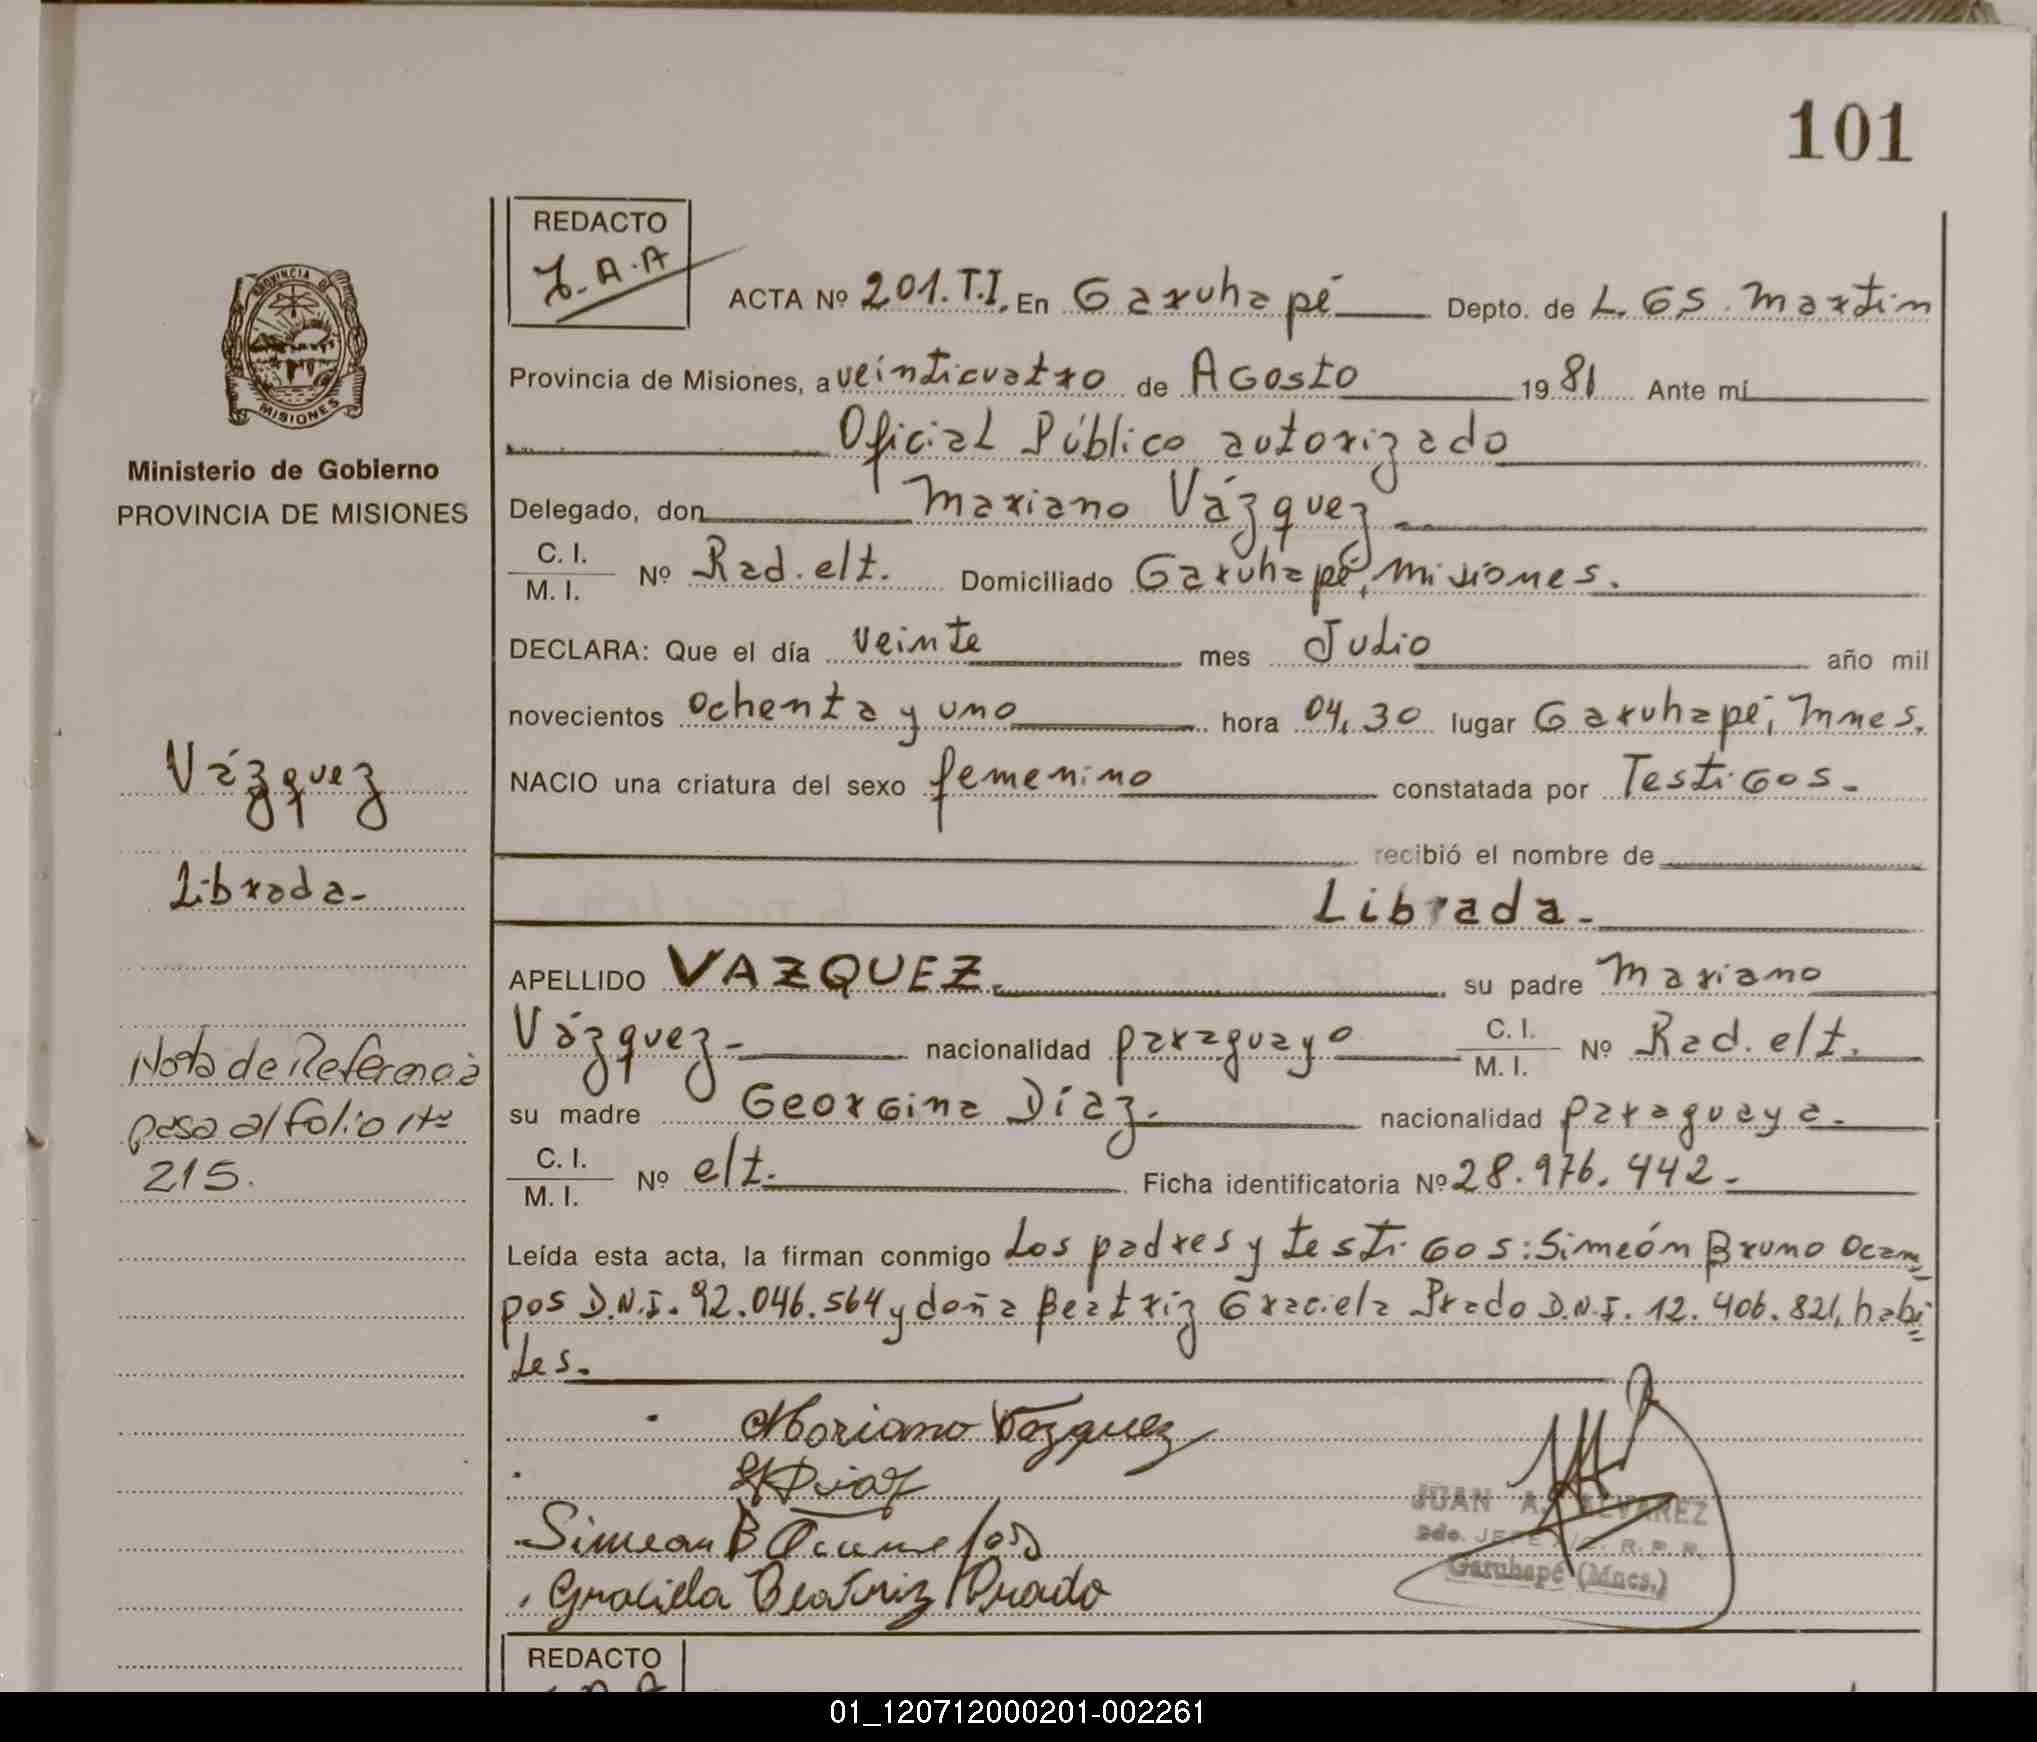 101
REDACTO
J.A.A
ACTA Nº 201.T.I. En Garuhapé Depto. de L. GS. Martin
Provincia de Misiones, a veinticuatro de AGosto 1981 Ante mí
Oficial Público autorizado
Delegado, don Mariano Vázquez
C. I.
M. I. Nº Rad. elt. Domiciliado Garuhapé, Misiones.
DECLARA: Que el día veinte mes Julio año mil
novecientos ochenta y uno hora 04,30 lugar Garuhapé, Mnes.
NACIO una criatura del sexo femenino constatada por TestiGos.
recibió el nombre de
Librada.
APELLIDO VAZQUEZ. su padre Mariano
Vázquez nacionalidad paraguayo C. I.
M. I. Nº Rad. elt.
su madre GeorGina Díaz. nacionalidad paraguaya.
C. I.
M. I. Nº elt. Ficha identificatoria Nº 28.976.442.
Leída esta acta, la firman conmigo Los padres y testiGos: Simeón Bruno Ocam
pos D.N.I. 92.046.564 y doña Beatriz Graciela Prado D.N.I. 12.406.821, hábi
les.
Mariano Vazquez
Diaz
Simeon B Ocampos
Graciela Beatriz Prado
JUAN A. ALVAREZ
2do. JEFE R. P. P.
Garuhapé (Mnes.)
PROVINCIA DE
MISIONES
Ministerio de Gobierno
PROVINCIA DE MISIONES
Vázquez
Librada-
Nota de Referencia
pasa al folio Nº
215.
REDACTO
01_120712000201-002261